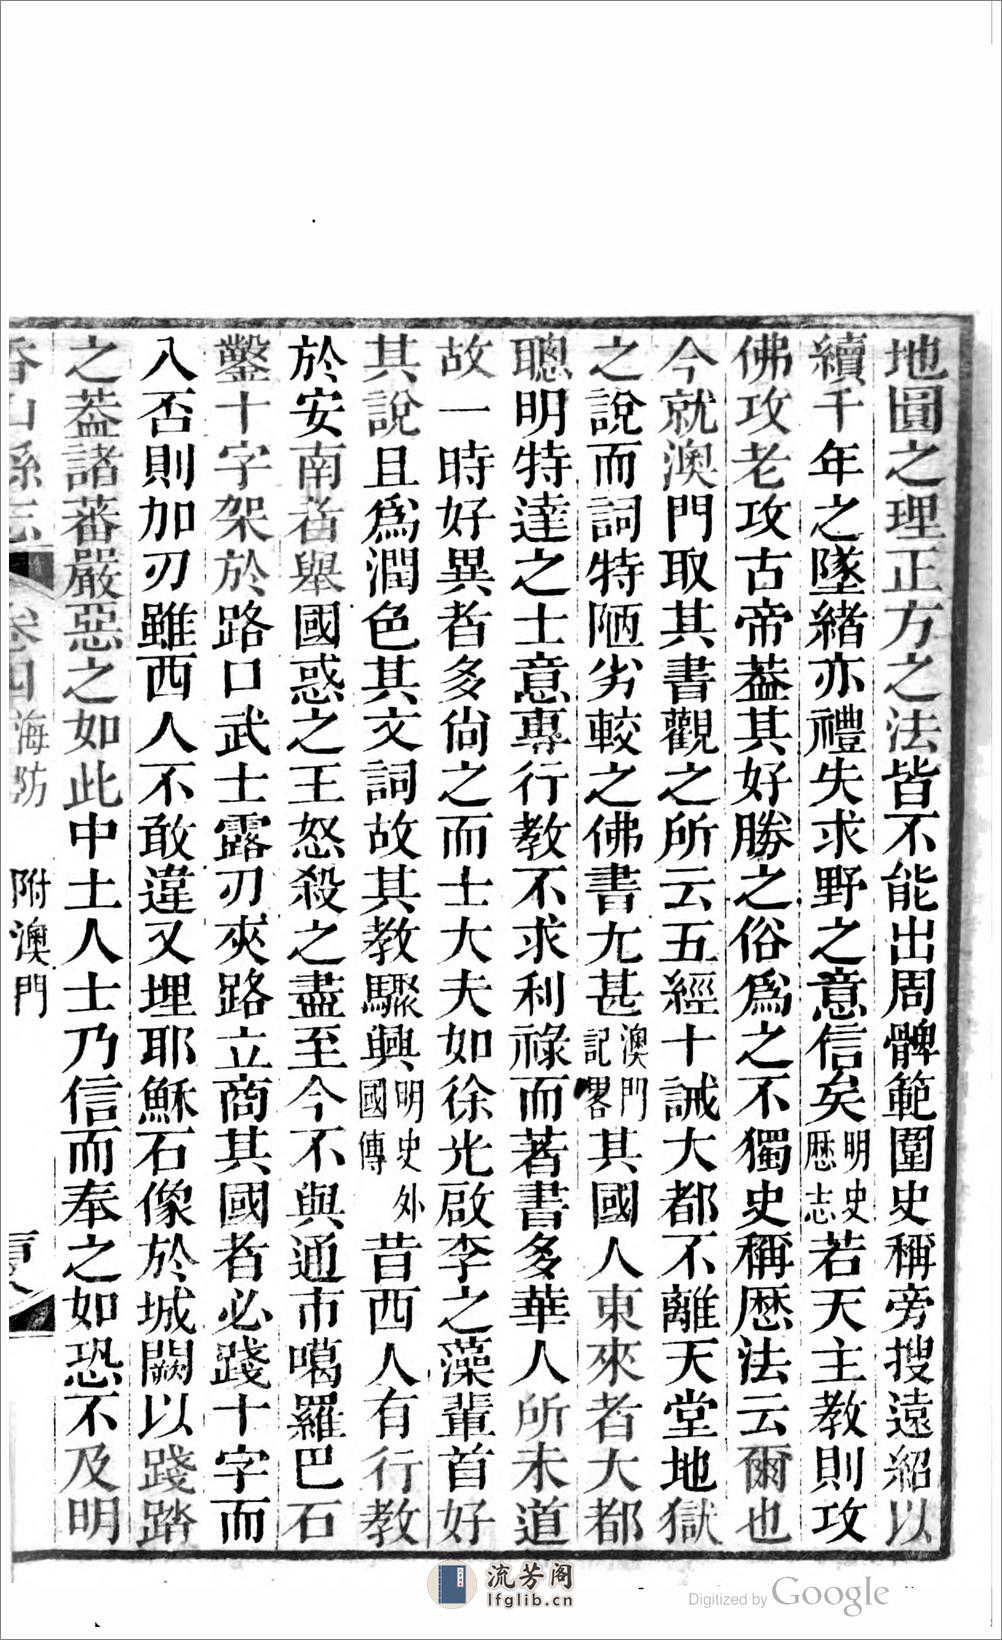 地圓之理正方之法皆不能出周髀範圍史稱旁搜遠紹以
續千年之墜緒亦禮失求野之意信矣明史歴志若天主教則攻
佛攻老攻古帝葢其好勝之俗爲之不獨史稱歴法云爾也
今就澳門取其書觀之所云五經十誡大都不離天堂地獄
之說而詞特陋劣較之佛書尤甚澳門記畧其國人東來者大都
聰明特達之士意專行教不求利祿而著書多華人所未道
故一時好異者多尚之而士大夫如徐光啟李之藻輩首好
其說且爲潤色其文詞故其教驟興明史外國傳昔西人有行教
於安南者舉國惑之王怒殺之盡至今不與通市噶羅巴石
鑿十字架於路口武士露刃夾路立商其國者必踐十字而
入否則加刃雖西人不敢違又埋耶穌石像於城闕以踐踏
之葢諸蕃嚴惡之如此中土人士乃信而奉之如恐不及明
香山縣志 卷四 海防 附澳門
流芳阁
lfglib.cn
Digitized by Google